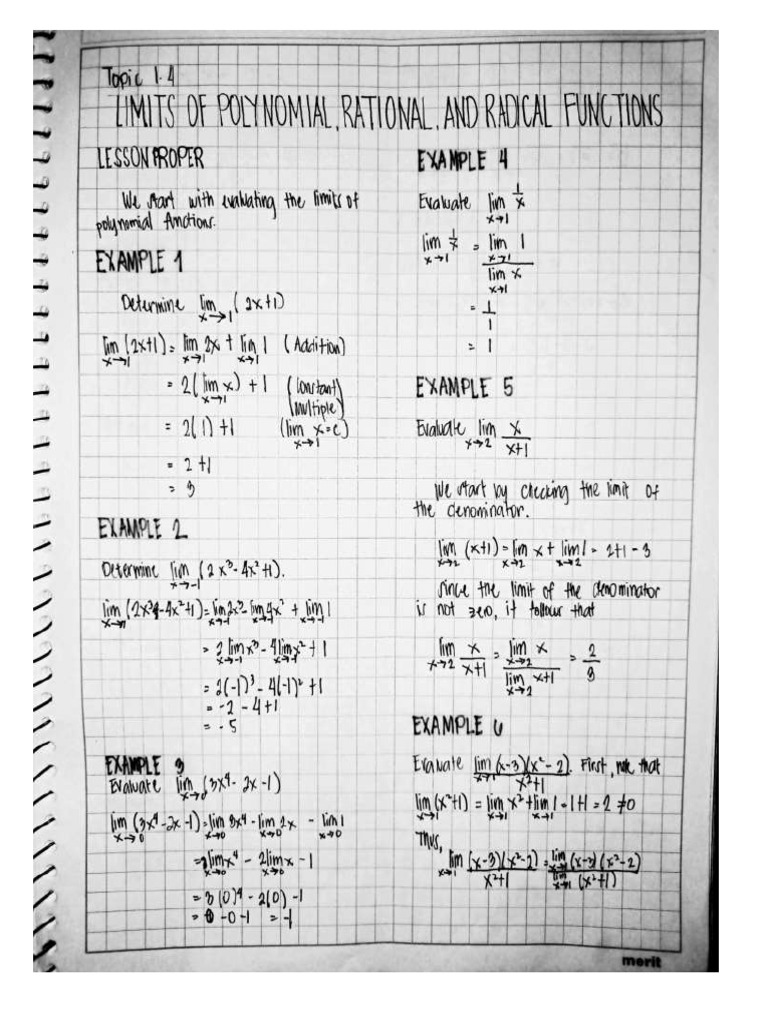 Topic 1.4
LIMITS OF POLYNOMIAL, RATIONAL, AND RADICAL FUNCTIONS
LESSON PROPER
We start with evaluating the limits of
polynomial functions.
EXAMPLE 1
Determine lim x→1 (2x+1)
lim x→1 (2x+1) = lim x→1 2x + lim x→1 1 (Addition)
= 2(lim x→1 x) + 1 (Constant Multiple)
= 2(1) + 1 (lim x→1 x=c)
= 2 + 1
= 3
EXAMPLE 2
Determine lim x→-1 (2x³ - 4x² + 1).
lim (2x³ - 4x² + 1) = lim x→-1 2x³ - lim x→-1 4x² + lim x→-1 1
= 2 lim x→-1 x³ - 4 lim x→-1 x² + 1
= 2(-1)³ - 4(-1)² + 1
= -2 - 4 + 1
= -5
EXAMPLE 3
Evaluate lim x→0 (3x⁴ - 2x - 1)
lim x→0 (3x⁴ - 2x - 1) = lim x→0 3x⁴ - lim x→0 2x - lim x→0 1
= 3 lim x→0 x⁴ - 2 lim x→0 x - 1
= 3(0)⁴ - 2(0) - 1
= 0 - 0 - 1 = -1
EXAMPLE 4
Evaluate lim x→1 1/x
lim x→1 1/x = lim x→1 1 / lim x→1 x
= 1/1
= 1
EXAMPLE 5
Evaluate lim x→2 x/x+1
We start by checking the limit of
the denominator.
lim x→2 (x+1) = lim x→2 x + lim x→2 1 = 2+1 - 3
Since the limit of the denominator
is not zero, it follows that
lim x→2 x/x+1 = lim x→2 x / lim x→2 x+1 = 2/3
EXAMPLE 6
Evaluate lim x→1 (x-3)(x²-2)/x²+1. First, note that
lim x→1 (x²+1) = lim x→1 x² + lim x→1 1 = 1+1 = 2 ≠ 0
Thus,
lim x→1 (x-3)(x²-2)/x²+1 = lim x→1 (x-3)(x²-2) / lim x→1 (x²+1)
merit